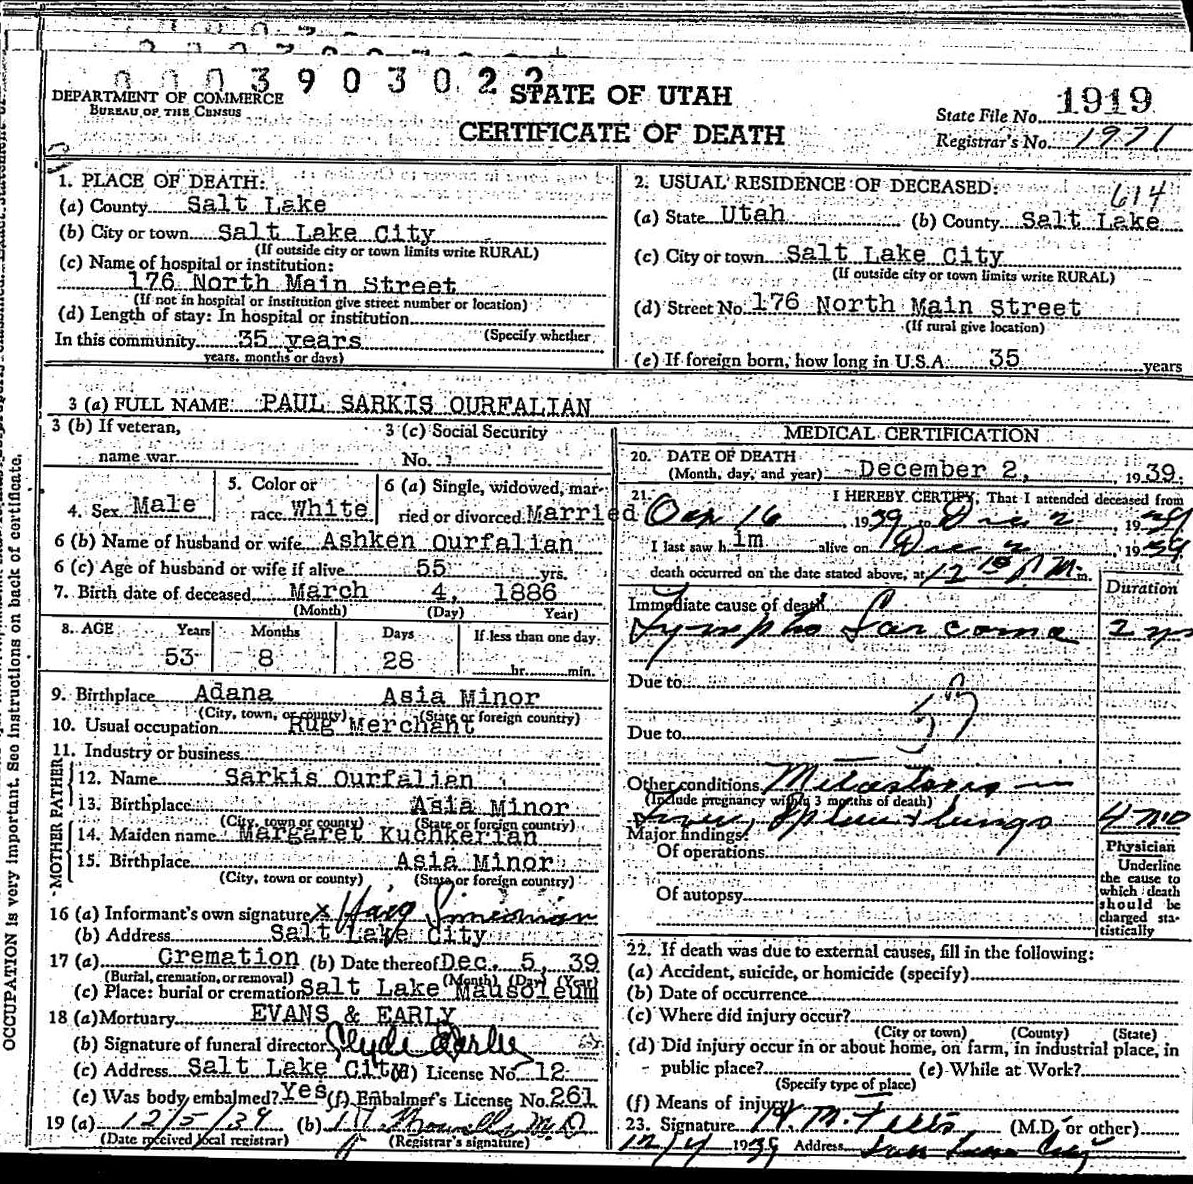 0003903022
DEPARTMENT OF COMMERCE
BUREAU OF THE CENSUS
STATE OF UTAH
CERTIFICATE OF DEATH
State File No. 1919
Registrar's No. 1971
1. PLACE OF DEATH:
(a) County Salt Lake
(b) City or town Salt Lake City
(If outside city or town limits write RURAL)
(c) Name of hospital or institution:
176 North Main Street
(If not in hospital or institution give street number or location)
(d) Length of stay: In hospital or institution
(Specify whether
In this community 35 years
years, months or days)
2. USUAL RESIDENCE OF DECEASED:
614
(a) State Utah (b) County Salt Lake
(c) City or town Salt Lake City
(If outside city or town limits write RURAL)
(d) Street No. 176 North Main Street
(If rural give location)
(e) If foreign born, how long in U.S.A. 35 years
3 (a) FULL NAME: PAUL SARKIS OURFALIAN
3 (b) If veteran,
name war
3 (c) Social Security
No.
4. Sex Male
5. Color or
race White
6 (a) Single, widowed, mar-
ried or divorced Married
6 (b) Name of husband or wife Ashken Ourfalian
6 (c) Age of husband or wife if alive 55 yrs.
7. Birth date of deceased March 4, 1886
(Month) (Day) Year)
8. AGE Years Months Days If less than one day
53 8 28 hr. min.
9. Birthplace Adana Asia Minor
(City, town, or county) (State or foreign country)
10. Usual occupation Rug Merchant
11. Industry or business
FATHER
12. Name Sarkis Ourfalian
13. Birthplace Asia Minor
(City, town or county) (State or foreign country)
MOTHER
14. Maiden name Margaret Kuchkerian
15. Birthplace Asia Minor
(City, town or county) (State or foreign country)
16 (a) Informant's own signature x Haig
(b) Address Salt Lake City
17 (a) Cremation (b) Date thereof Dec. 5, 39
(Burial, cremation, or removal) (Month) (Day) (Year)
(c) Place: burial or cremation Salt Lake Mausoleum
18 (a) Mortuary EVANS & EARLY
(b) Signature of funeral director Clyde Earle
(c) Address Salt Lake City (d) License No. 12
(e) Was body embalmed? Yes (f) Embalmer's License No. 261
19 (a) 12/5/39 (b) M.D.
(Date received local registrar) (Registrar's signature)
MEDICAL CERTIFICATION
20. DATE OF DEATH
(Month, day, and year) December 2, 1939.
21. I HEREBY CERTIFY, That I attended deceased from
16, 1939 to Dec 2, 1939
I last saw h im alive on Dec 2, 1939
death occurred on the date stated above, at 12 15 P M. m.
Duration
Immediate cause of death
Lympho Sarcoma 2 yrs
Due to
Due to
Other conditions Metastasis in
(Include pregnancy within 3 months of death)
liver, Spleen & lungs 4 mo
Major findings:
Of operations
Of autopsy
Physician
Underline
the cause to
which death
should be
charged sta-
tistically
22. If death was due to external causes, fill in the following:
(a) Accident, suicide, or homicide (specify)
(b) Date of occurrence
(c) Where did injury occur?
(City or town) (County) (State)
(d) Did injury occur in or about home, on farm, in industrial place, in
public place? (e) While at Work?
(Specify type of place)
(f) Means of injury
23. Signature (M.D. or other)
12/4 1939 Address Salt Lake City
OCCUPATION is very important. See instructions on back of certificate.